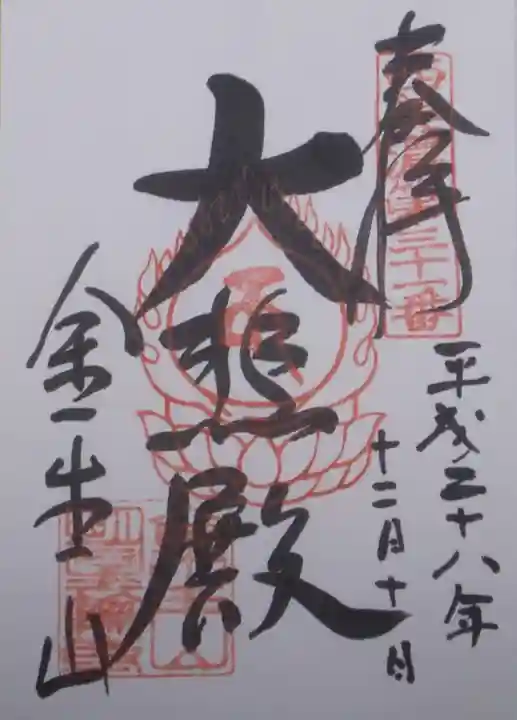 奉拝
三十一番
平成二十八年
十二月十日
大悲殿
金生山